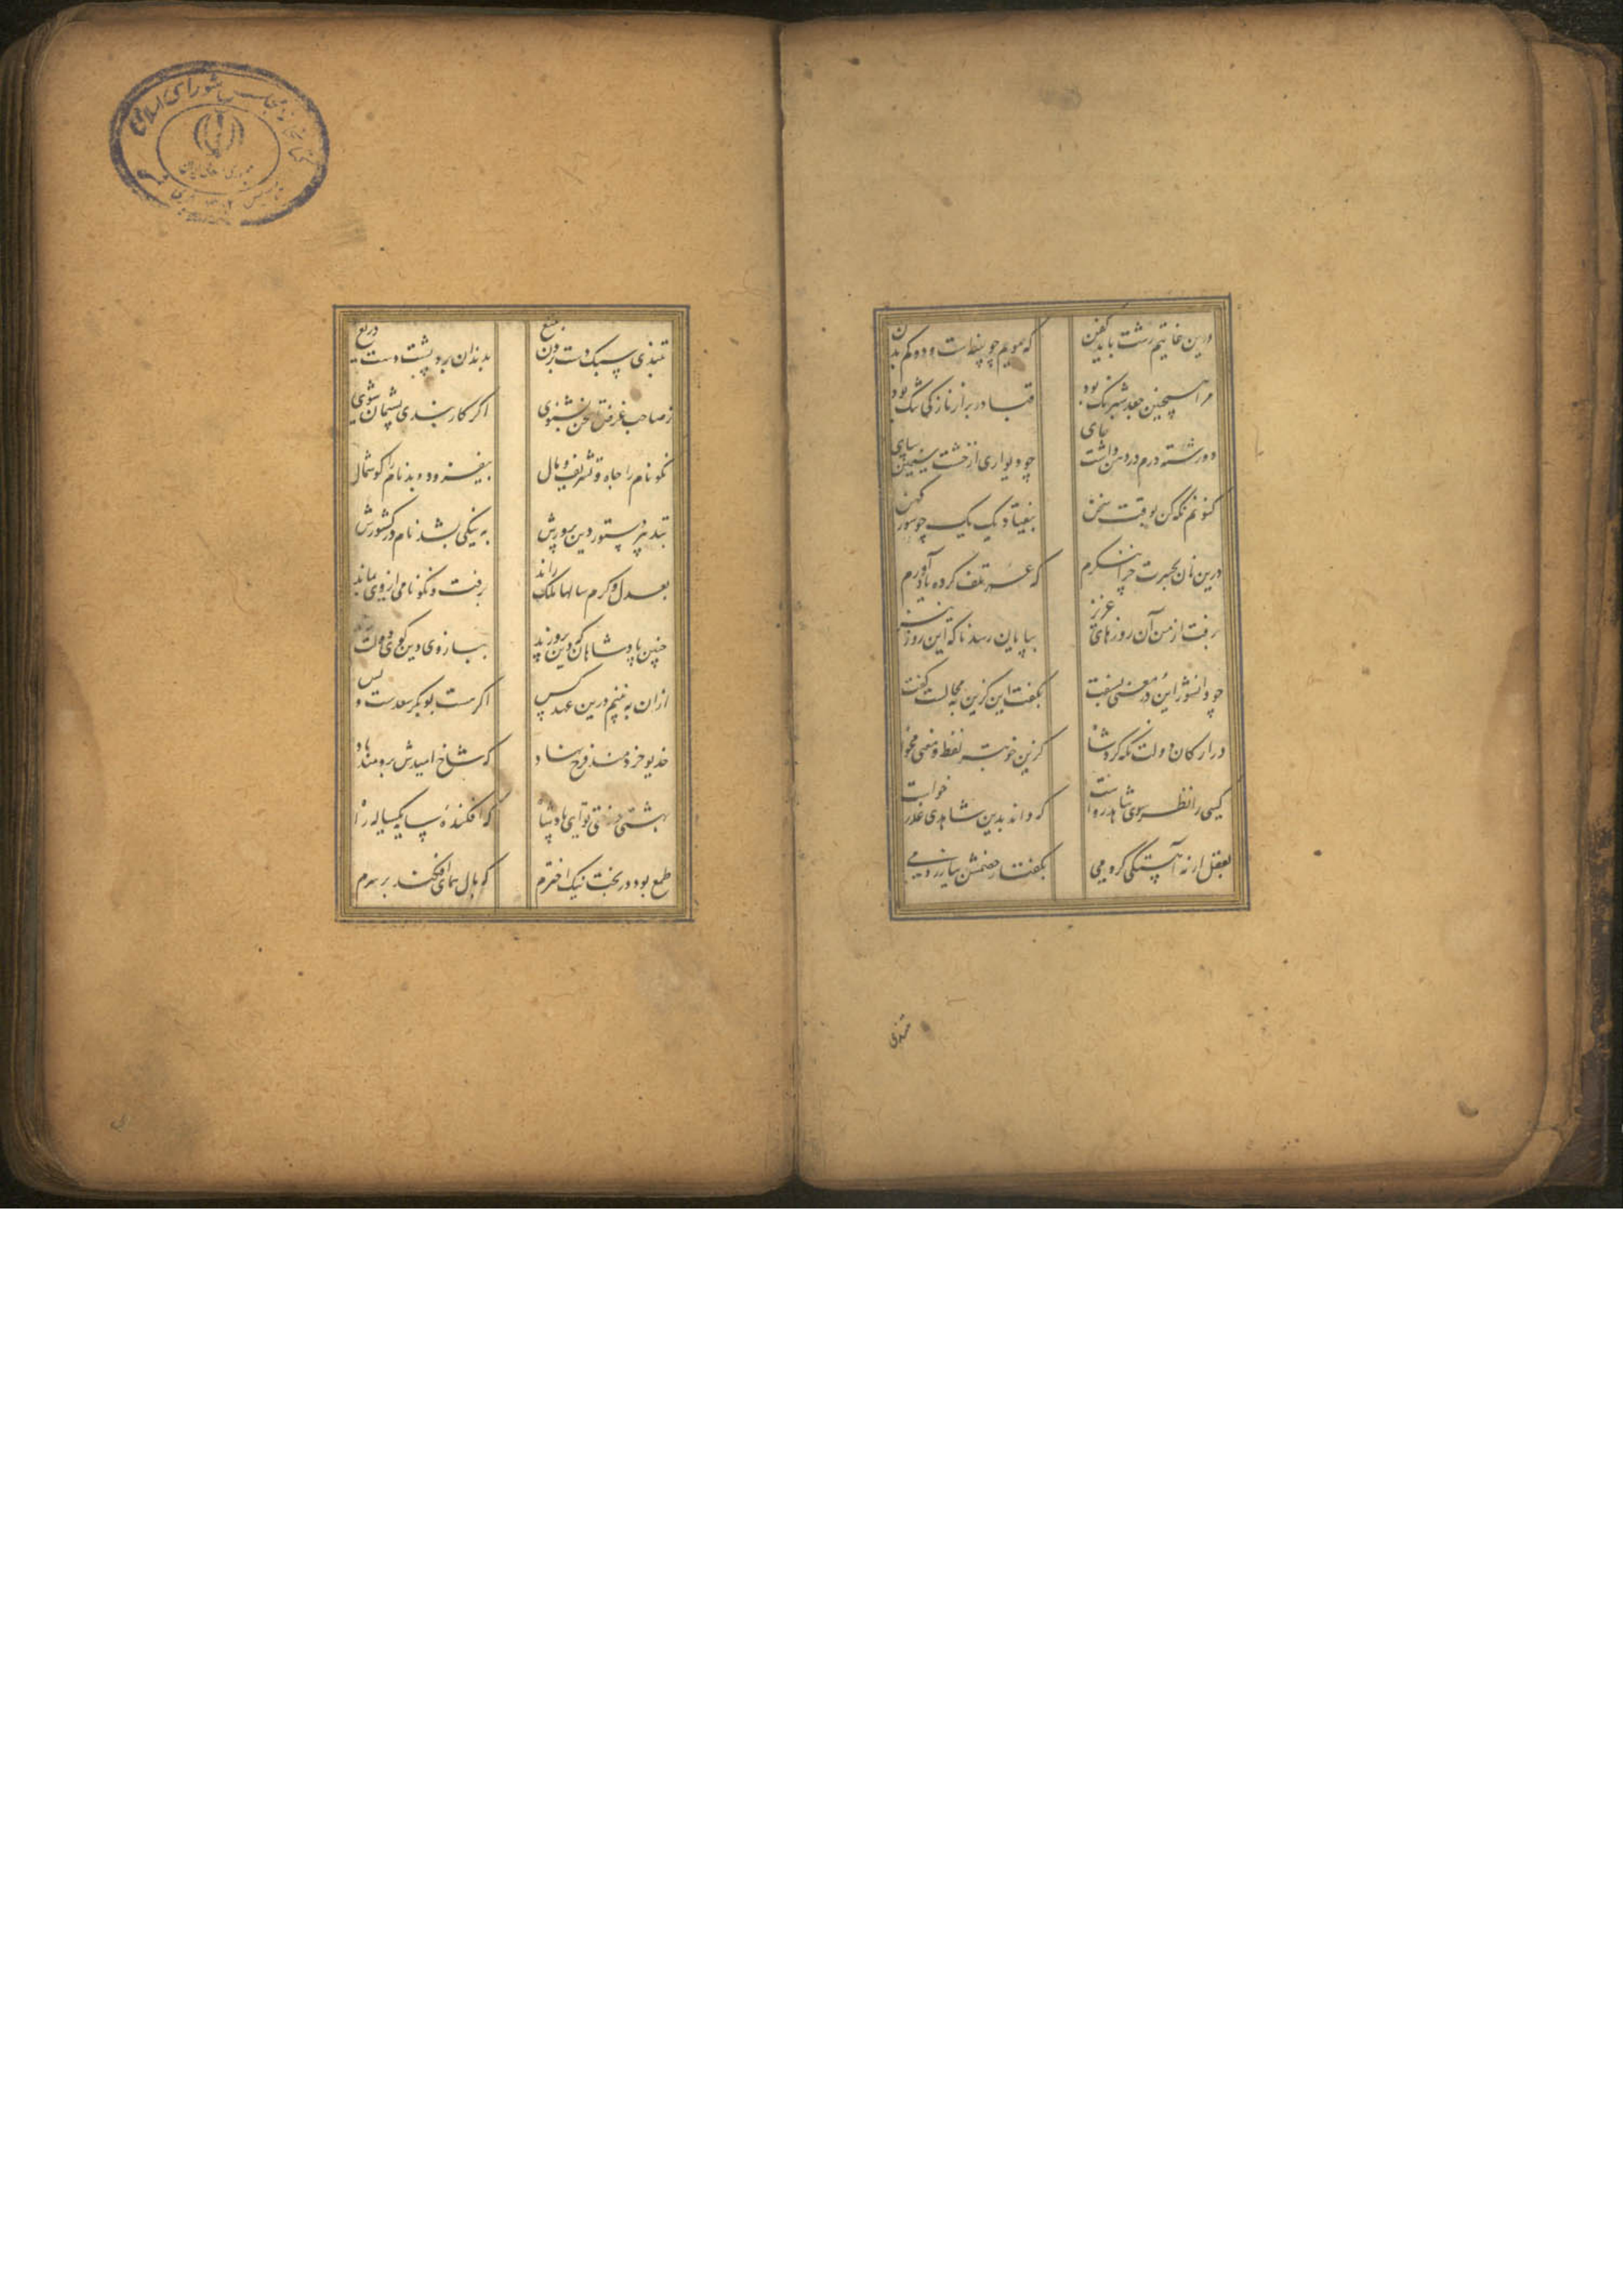 درین غایتم رشت باید کفن که مویم چو پنبه‌ست و دوکم بدن
مرا همچنین جعد شبرنگ بود قبا در بر از نازکی تنگ بود
دو رسته درم در دهن داشت جای چو دیواری از خشت سیمین بپای
کنونم نگه کن بوقت سخن بیفتاد یک یک چو سور کهن
درینان بحسرت چرا ننگرم که عمر تلف کرده یاد آورم
برفت از من آن روزهای عزیز بپایان رسد ناگه این روز نیز
چو دانشور این در معنی بسفت بگفت این کزین به محالست گفت
در ارکان دولت نگه کرد شاه کزین خوبتر لفظ و معنی مخواه
کسی را نظر سوی شاهد رواست که داند بدین شاهدی عذر خواست
بعقل ار نه آهستگی کردمی بگفتار خصمش بیازردمی
بتندی
بتندی سبک دست بردن بتیغ بدندان برد پشت دست دریغ
ز صاحب غرض تا سخن نشنوی اگر کار بندی پشیمان شوی
نکو نام را جاه و تشریف و مال بیفزود و بدنام را کوشمال
بتدبیر دستور دین پرورش به نیکی بشد نام در کشورش
بعدل و کرم سالها ملک راند برفت و نکو نامی از وی بماند
چنین پادشاهان که دین پرورند ببازوی دین کوی دولت برند
ازان به نبینم درین عهد کس اگر هست بوبکر سعدست و بس
خدیو خردمند فرخ نهاد که شاخ امیدش برومند باد
بهشتی درختی تو ای پادشاه که افکندهٔ سایه یکساله راه
طمع بود در بخت نیک اخترم که بال همای افکند بر سرم
کتابخانه مجلس شورای اسلامی
جمهوری اسلامی ایران